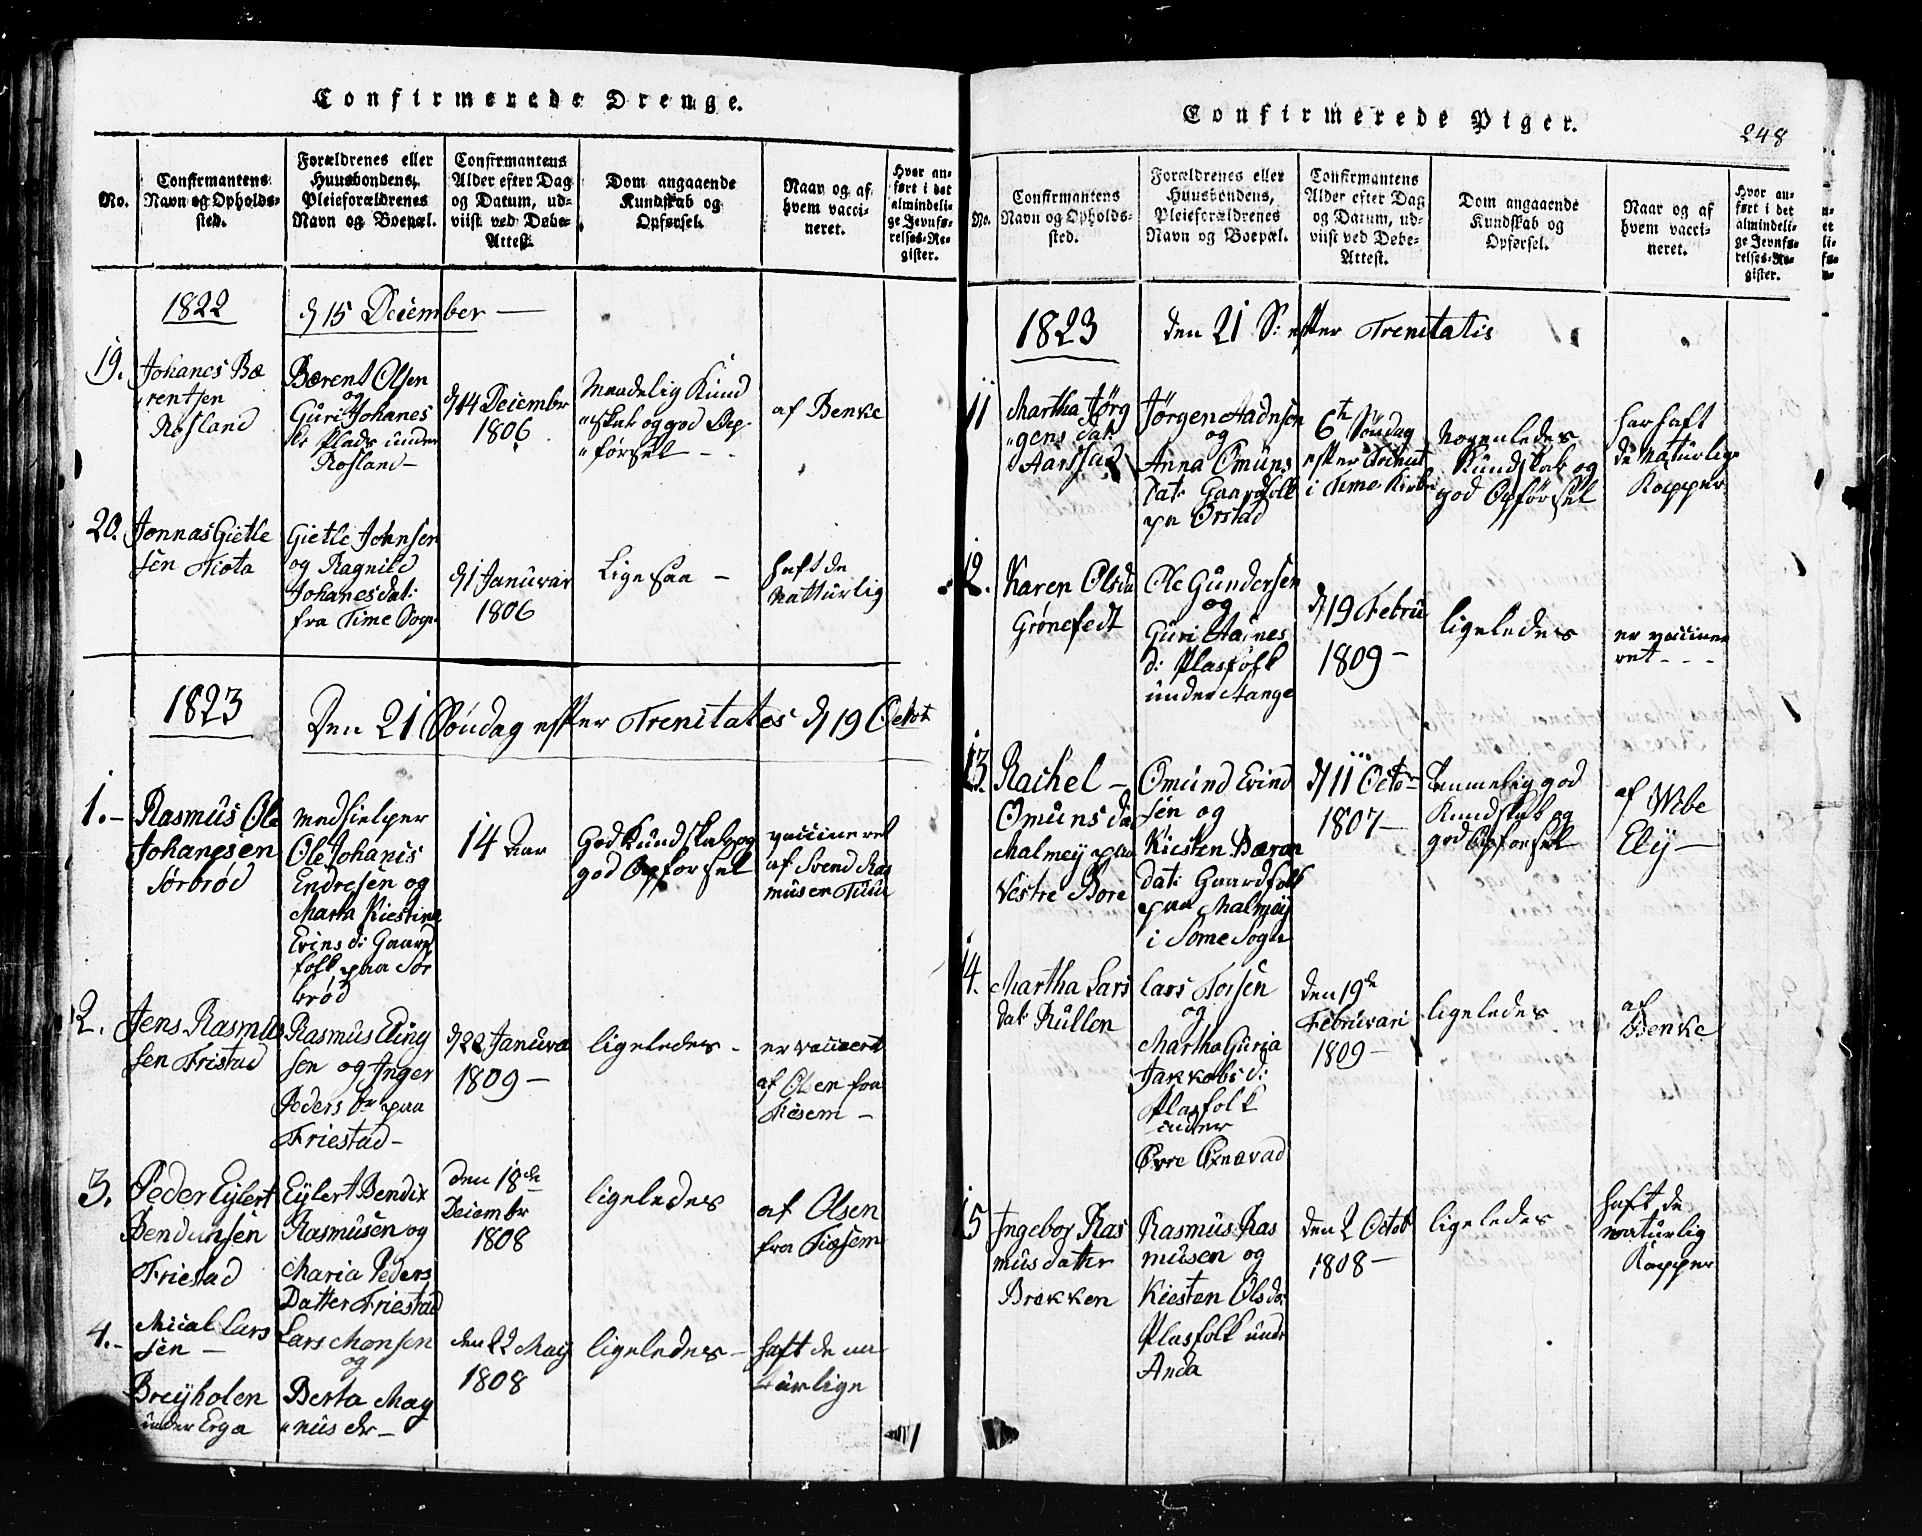 Confirmerede Drenge.
No.
Confirmantens
Navn og Opholds-
sted.
Forældrenes eller
Huusbondens,
Pleieforældrenes
Navn og Boepæl.
Confirmantens
Alder efter Dag
og Datum, ud-
viist ved Døbe-
Attest.
Dom angaaende
Kundskab og
Opførsel.
Naar og af
hvem vacci-
neret.
Hvor an-
ført i det
almindeli-
ge Jevnfø-
relses-Re-
gister.
1822
d 15 December
19.
Johanes Bæ
rentsen
Rosland
Bærent Olsen
og
Guri Johanes
dr Plads under
Rosland
d 14 December
1806
Maadelig Kund
skab og god Op
førsel
af Benke
20.
Jonnas Gietle
sen Tiøta
Gietle Johnsen
og Ragnild
Johanesdat:
fra Time Sogn
d 1 Januvar
1806
Lige saa
haft de
Natturlig
1823
Den 21 Søndag efter Trenitates d 19 Octob
1.
Rasmus Ole
Johanesen
Sørbrød
medhielper
Ole Johanis
Endresen og
Marta Kiestina
Evins d: Gaard
folk paa Sør
brød
14 Aar
God Kundskab og
god Opforsel
vaccineret
af Svend Ras
musen Tuu
2.
Jens Rasmus
sen Fristad
Rasmus Eling
sen og Inger
Peders dr paa
Friestad
d 22 Januva
1809
ligeledes
er vaccert
af Olsen fra
Tiøsem
3.
Peder Eylert
Friestad
Eylert Bendix
Rasmusen og
Maria Peders
Datter Friestad
den 18de
Decembr
1808
ligeledes
af Olsen
fra Tiøsem
4.
Mical Lars
sen
Breyholen
under Erga
Lars Monsen
og
Berta Mag
nus dr
den 22 May
1808
ligeledes
haft de na
turlige
Confirmerede Piger.
248
No.
Confirmantens
Navn og Opholds-
sted.
Forældrenes eller
Huusbondens,
Pleieforældrenes
Navn og Boepæl.
Confirmantens
Alder efter Dag
og Datum, ud-
viist ved Døbe-
Attest.
Dom angaaende
Kundskab og
Opførsel.
Naar og af
hvem vacci-
neret.
Hvor an-
ført i det
almindeli-
ge Jevnfø-
relses-Re-
gister.
1823
den 21 S: efter Trenitatis
11
Martha Jørg
gens dat
Jørgen Aadnsen
og
Anna Omuns
dat: Gaardfolk
paa Orstad
6te Søndag
efter
i Time Kirke
Nogenledes
Kundskab og
god Opførsel
har haft
de naturlige
Kopper
12.
Karen Olsda
Grønefedt
Ole Gundersen
og
Guri Aanes
d: Plasfolk
under Stange
d 19 Febru
1809
ligeledes
er vaccine
ret
13.
Rachel
Omuns da
Malmey paa
Vestre Bore
Omund Evind
sen og
Kiesten Bæran
dat: Gaardfolk
paa Malmøy
i Some Sogn
d 11 Octo
1807
temmelig god
Kundskab og
god Opforsel
af Wibe
Ely
14.
Martha Lars
dat: Rullen
Lars Torsen
og
Martha Guria
Jakkobs d:
Plasfolk
under
Øvre Øxnavad
den 19de
Februvari
1809
ligeledes
af
Benke
15
Ingebor Ras
musdatter
Brekken
Rasmus Ras
musen og
Kiesten Olsda:
Plasfolk und
Anda
den 2 Octob
1808
ligeledes
haft de
naturlig
Kopper